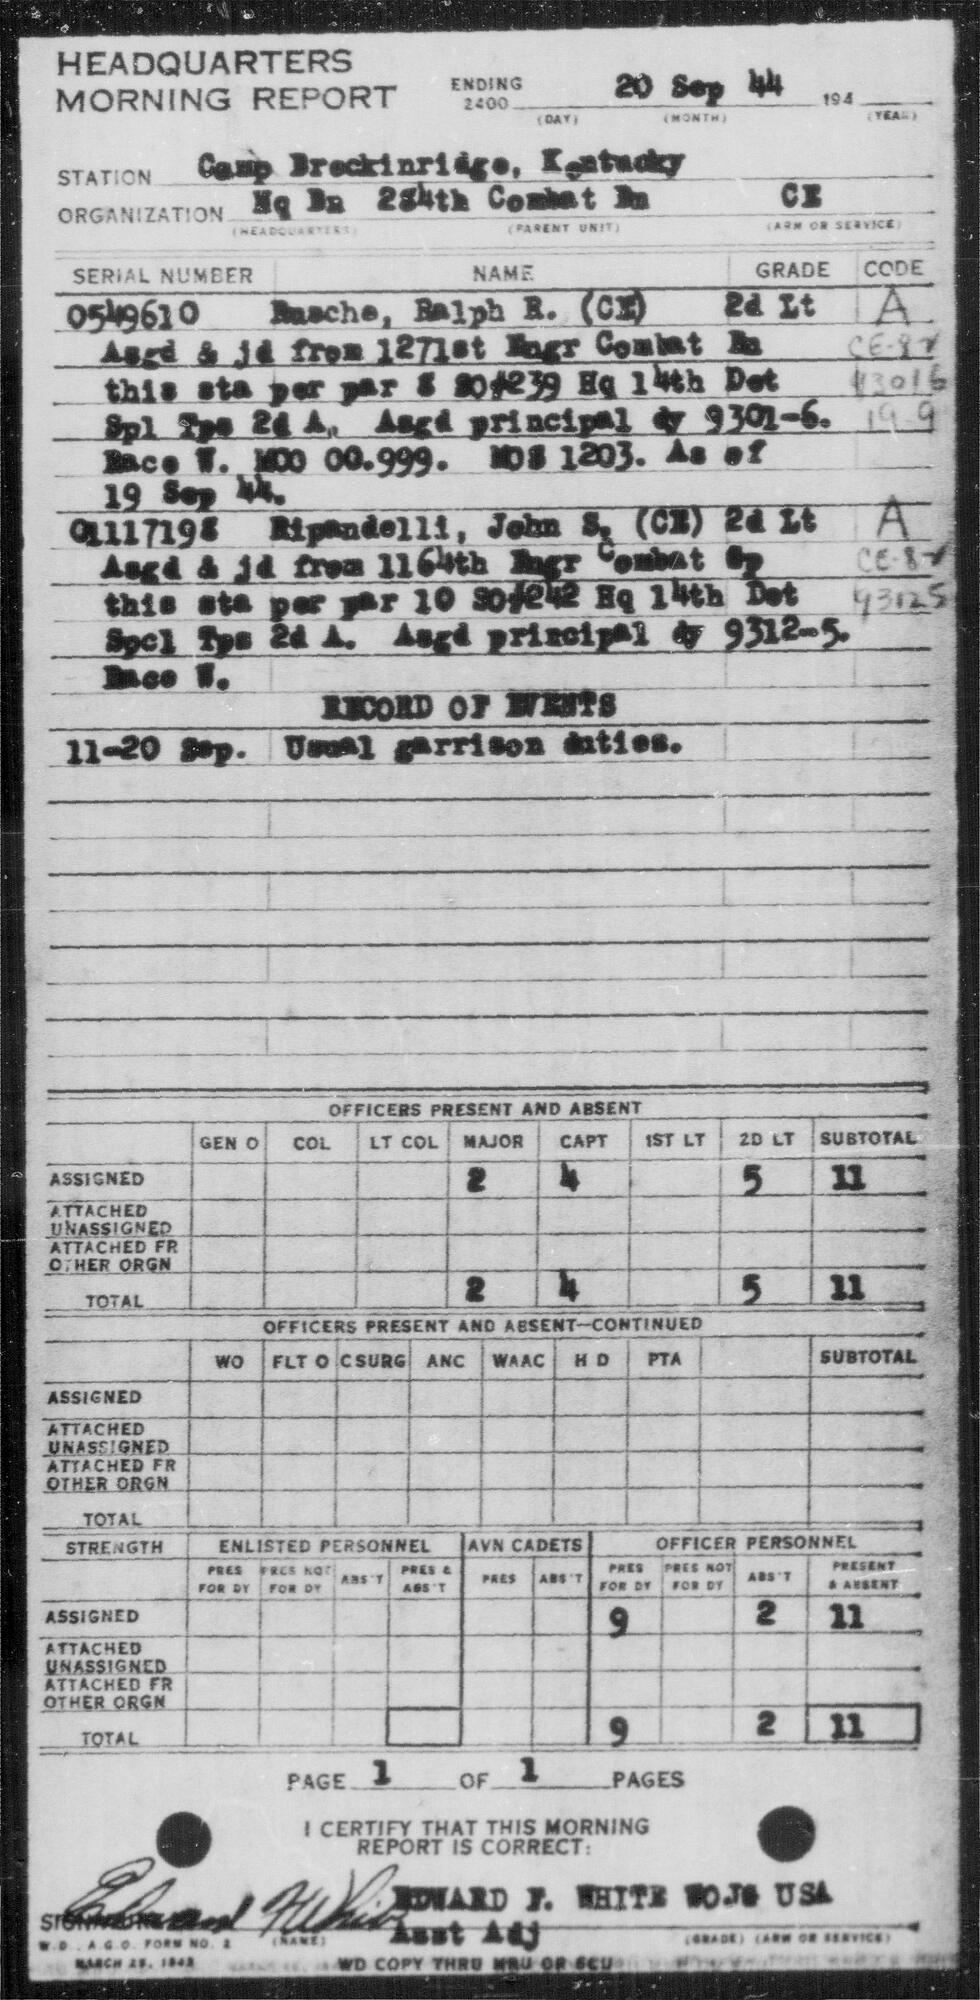 HEADQUARTERS
MORNING REPORT
ENDING 2400 20 Sep 44 194
(DAY) (MONTH) (YEAR)
STATION Camp Breckinridge, Kentucky
ORGANIZATION Hq Bn 284th Combat Bn CE
(HEADQUARTERS) (PARENT UNIT) (ARM OR SERVICE)
SERIAL NUMBER NAME GRADE CODE
0549610 Rasche, Ralph R. (CE) 2d Lt A
Asgd & jd from 1271st Engr Combat Bn CE-8
this sta per par 8 SO#239 Hq 14th Det 93016
Spl Tps 2d A. Asgd principal dy 9301-6. 19 9
Race W. MOO 00.999. MOS 1203. As of
19 Sep 44.
01117198 Ripandelli, John S. (CE) 2d Lt A
Asgd & jd from 1164th Engr Combat Gp CE-8
this sta per par 10 SO#242 Hq 14th Det 93125
Spcl Tps 2d A. Asgd principal dy 9312-5.
Race W.
RECORD OF EVENTS
11-20 Sep. Usual garrison duties.
OFFICERS PRESENT AND ABSENT
GEN O COL LT COL MAJOR CAPT 1ST LT 2D LT SUBTOTAL
ASSIGNED 2 4 5 11
ATTACHED
UNASSIGNED
ATTACHED FR
OTHER ORGN
TOTAL 2 4 5 11
OFFICERS PRESENT AND ABSENT—CONTINUED
WO FLT O C SURG ANC WAAC H D PTA SUBTOTAL
ASSIGNED
ATTACHED
UNASSIGNED
ATTACHED FR
OTHER ORGN
TOTAL
STRENGTH ENLISTED PERSONNEL AVN CADETS OFFICER PERSONNEL
PRES FOR DY PRES NOT FOR DY ABS'T PRES & ABS'T PRES ABS'T PRES FOR DY PRES NOT FOR DY ABS'T PRESENT & ABSENT
ASSIGNED 9 2 11
ATTACHED
UNASSIGNED
ATTACHED FR
OTHER ORGN
TOTAL 9 2 11
PAGE 1 OF 1 PAGES
I CERTIFY THAT THIS MORNING
REPORT IS CORRECT:
Edward F White EDWARD F. WHITE WOJG USA
SIGNATURE Asst Adj
W.D., A.G.O. FORM NO. 2 (NAME) (GRADE) (ARM OR SERVICE)
MARCH 25, 1943 WD COPY THRU MRU OR SCU